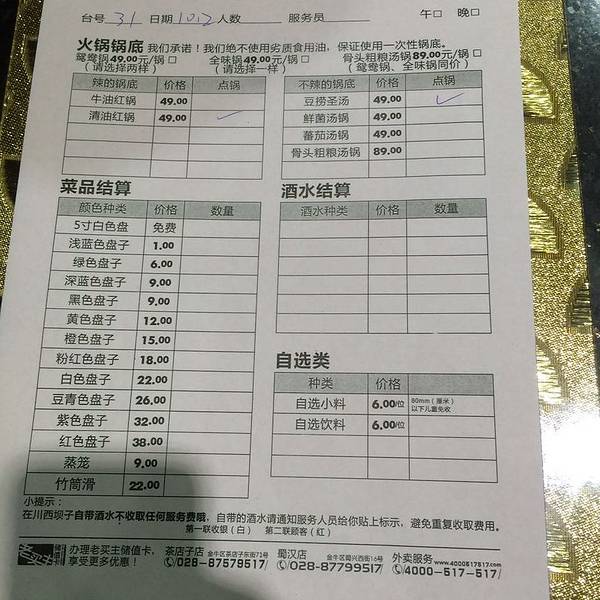 台号 31 日期 10.2 人数 服务员 午□ 晚□
火锅锅底 我们承诺！我们绝不使用劣质食用油，保证使用一次性锅底。
鸳鸯锅49.00元/锅□ 全味锅49.00元/锅□ 骨头粗粮汤锅89.00元/锅□
（请选择两样） （请选择一样） （鸳鸯锅、全味锅同价）
辣的锅底 价格 点锅 不辣的锅底 价格 点锅
牛油红锅 49.00 豆捞圣汤 49.00 ✓
清油红锅 49.00 ✓ 鲜菌汤锅 49.00
蕃茄汤锅 49.00
骨头粗粮汤锅 89.00
菜品结算
颜色种类 价格 数量
5寸白色盘 免费
浅蓝色盘子 1.00
绿色盘子 6.00
深蓝色盘子 9.00
黑色盘子 9.00
黄色盘子 12.00
橙色盘子 15.00
粉红色盘子 18.00
白色盘子 22.00
豆青色盘子 26.00
紫色盘子 32.00
红色盘子 38.00
蒸笼 9.00
竹筒滑 22.00
酒水结算
酒水种类 价格 数量
自选类
种类 价格
自选小料 6.00/位 80mm（厘米）以下儿童免收
自选饮料 6.00/位
小提示：
在川西坝子自带酒水不收取任何服务费哦，自带的酒水请通知服务人员给你贴上标示，避免重复收取费用。
第一联收银（白） 第二联顾客（红）
办理老买主储值卡，享受更多优惠！
茶店子店 金牛区茶店子东街71号
028-87579517/
蜀汉店 金牛区蜀兴西街16号
028-87799517/
外卖服务 www.4000517517.com
4000-517-517/